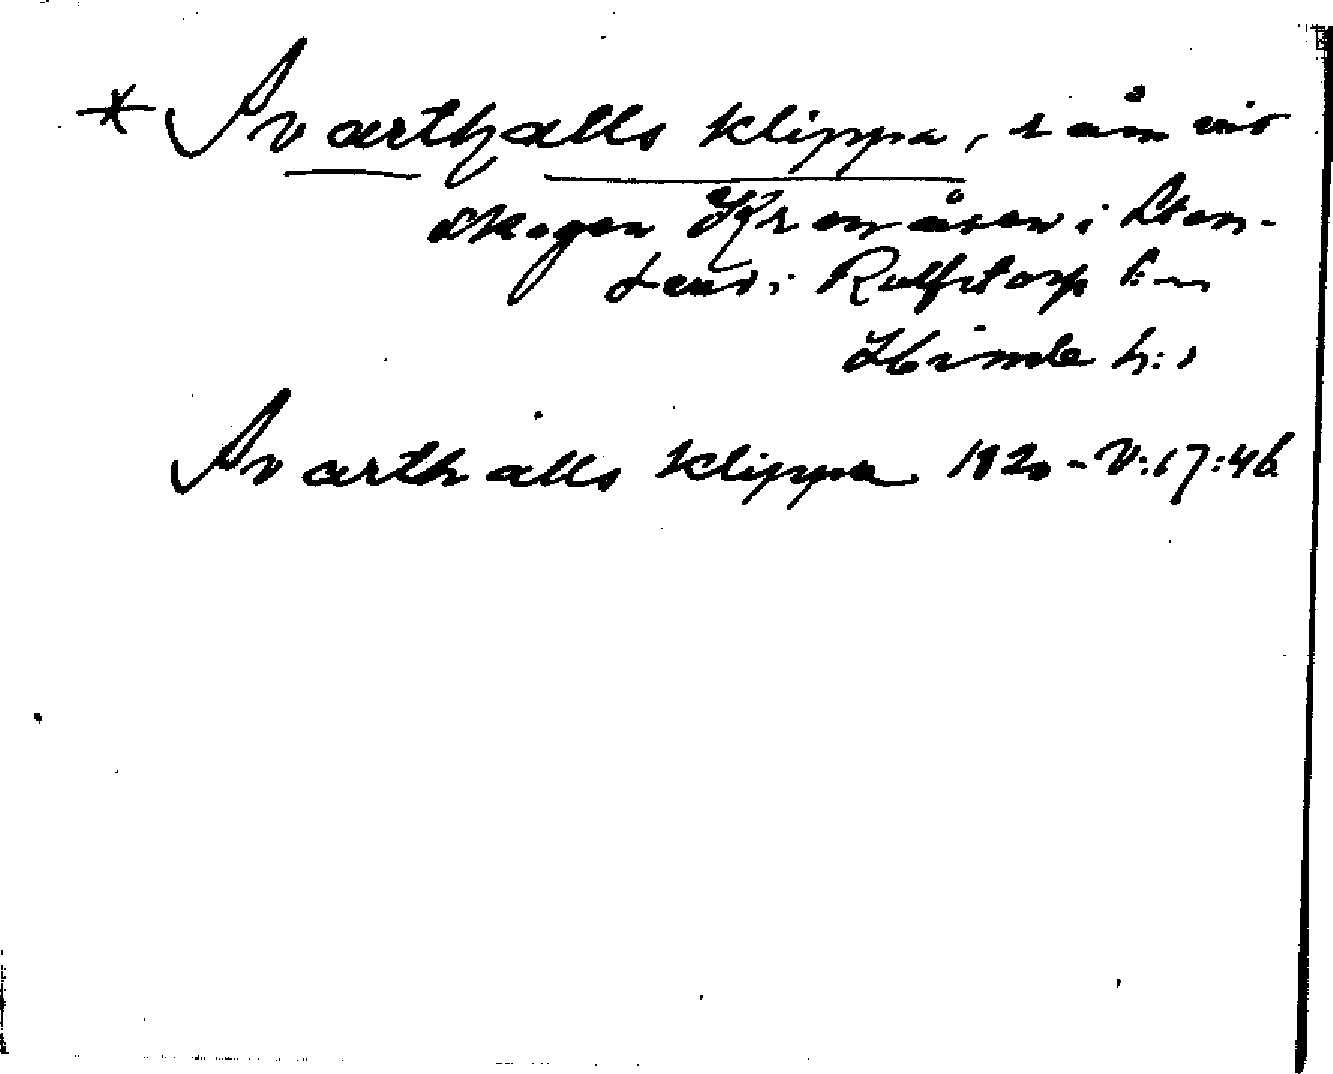 * Svarthalls klippa, t. åm vid
skogen Kromåsen i Sten-
land i Rolfstorp s:n
Himle h:d
Svarthalls klippa 1820 - V:17:46